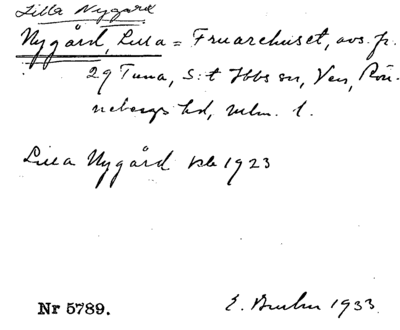 Lilla Nygård
Nygård, Lilla = Fruarehuset, avs. fr.
29 Tuna, S:t Ibbs sn, Ven, Rön-
nebergs hd, Mlm. l.
Lilla Nygård Kbl 1923
Nr 5789.
E. Bruhn 1933